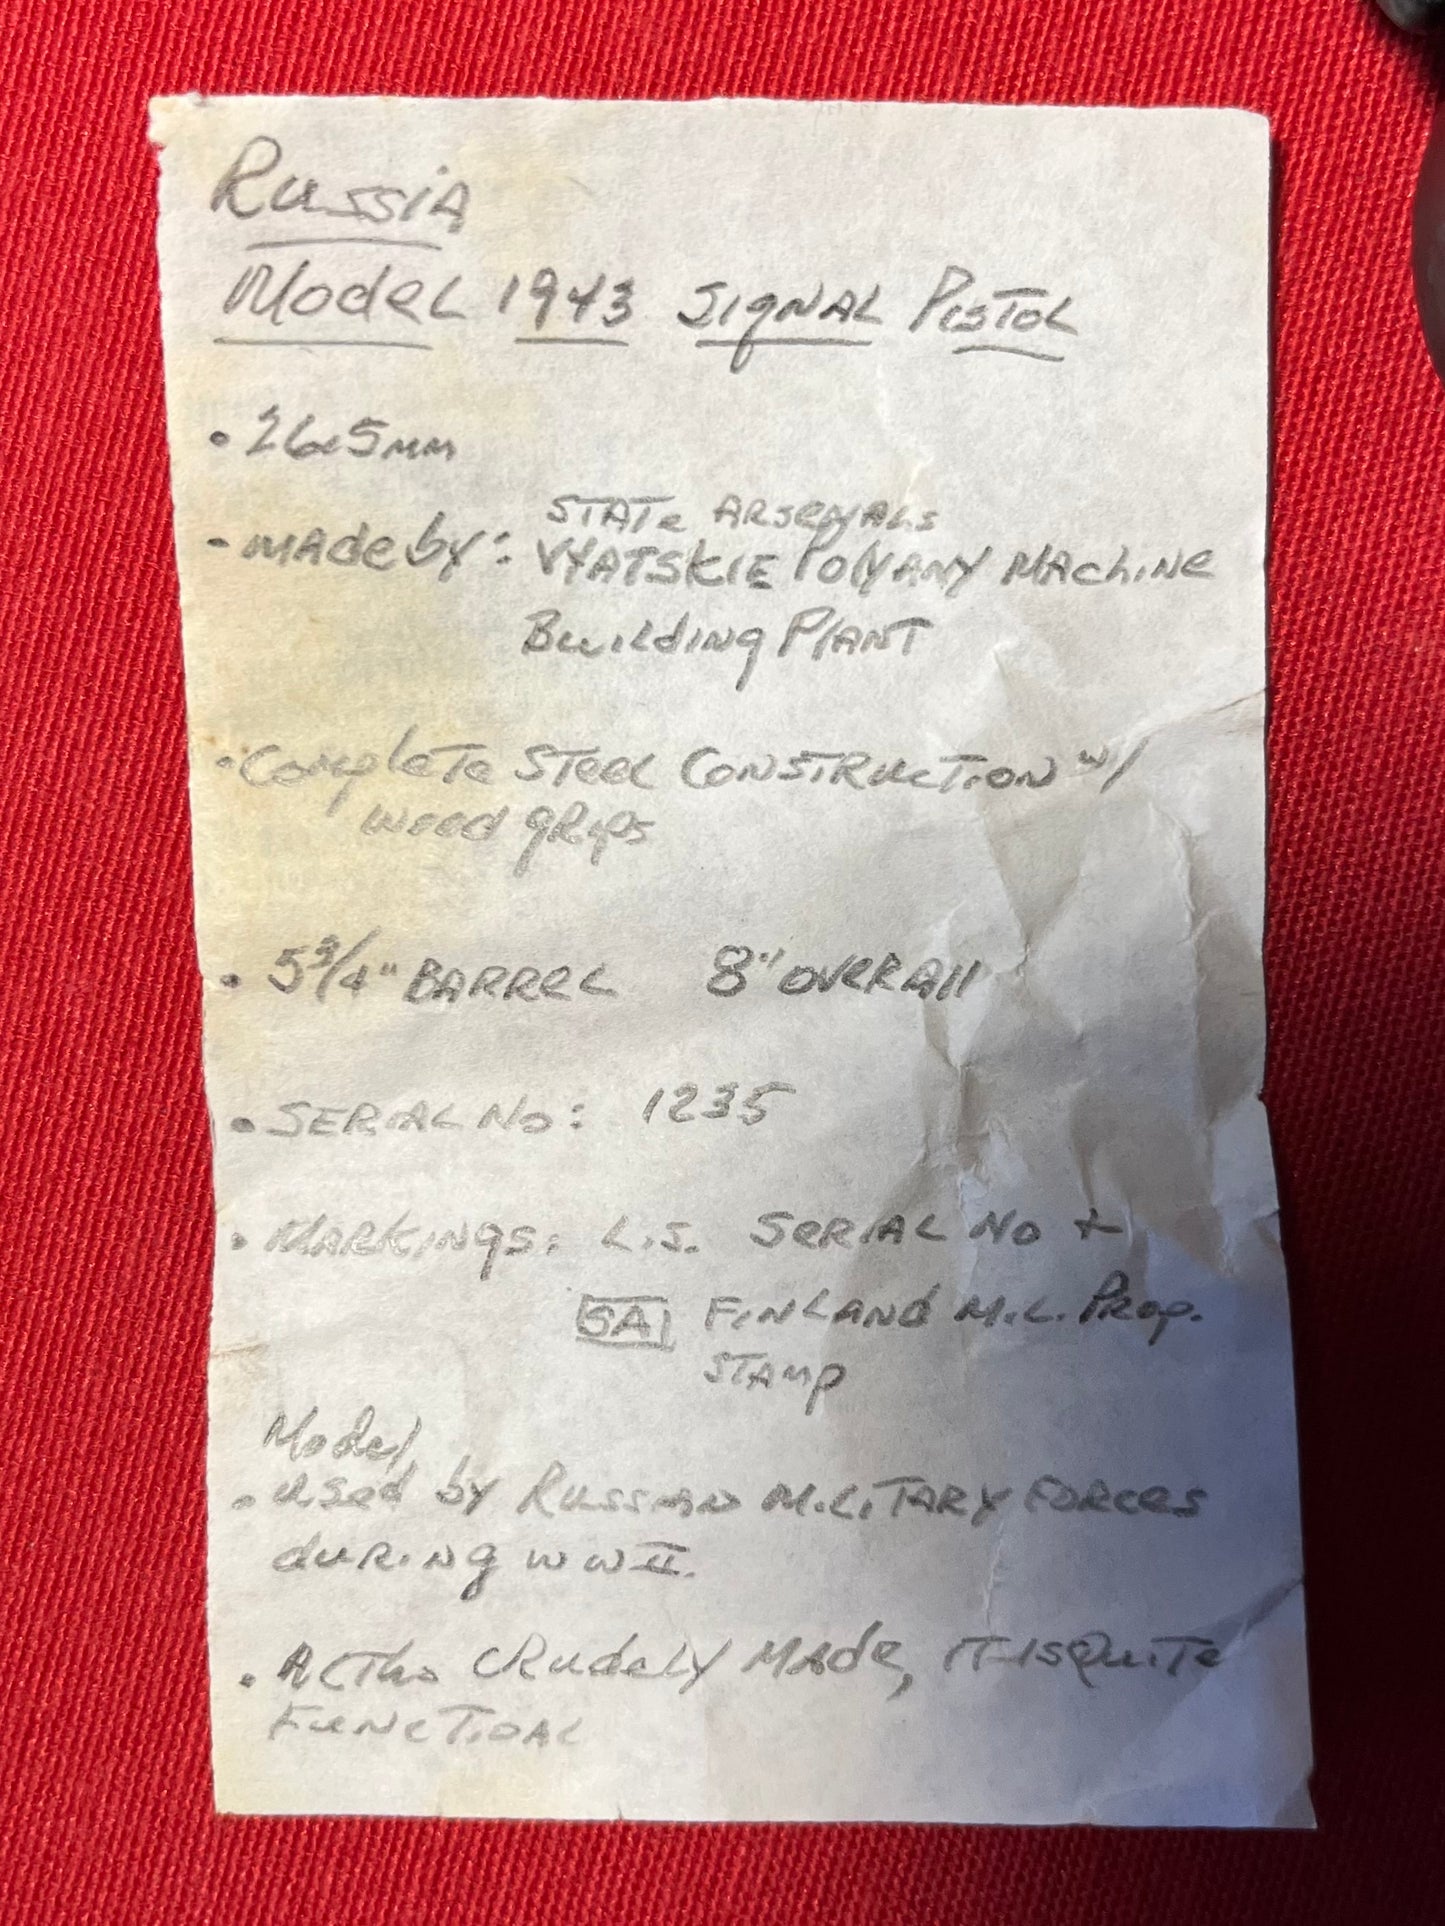 Russia
Model 1943 Signal Pistol
• 26.5mm
STATE ARSENALS
- MADE by: VYATSKIE POLYANY MACHINE
Building PLANT
• Complete STeel CONSTRUCTION w/
wood grips
• 5 3/4" BARREL 8" OVERAll
• SERIAL No: 1235
• MARKINGS: L.S. SERIAL NO +
SA FINLAND MIL. PROP.
STAMP
Model
• used by RUSSIAN MILITARY FORCES
during WW II.
• ALTho CRudely MADE, IT IS QUITE
FUNCTIOAL